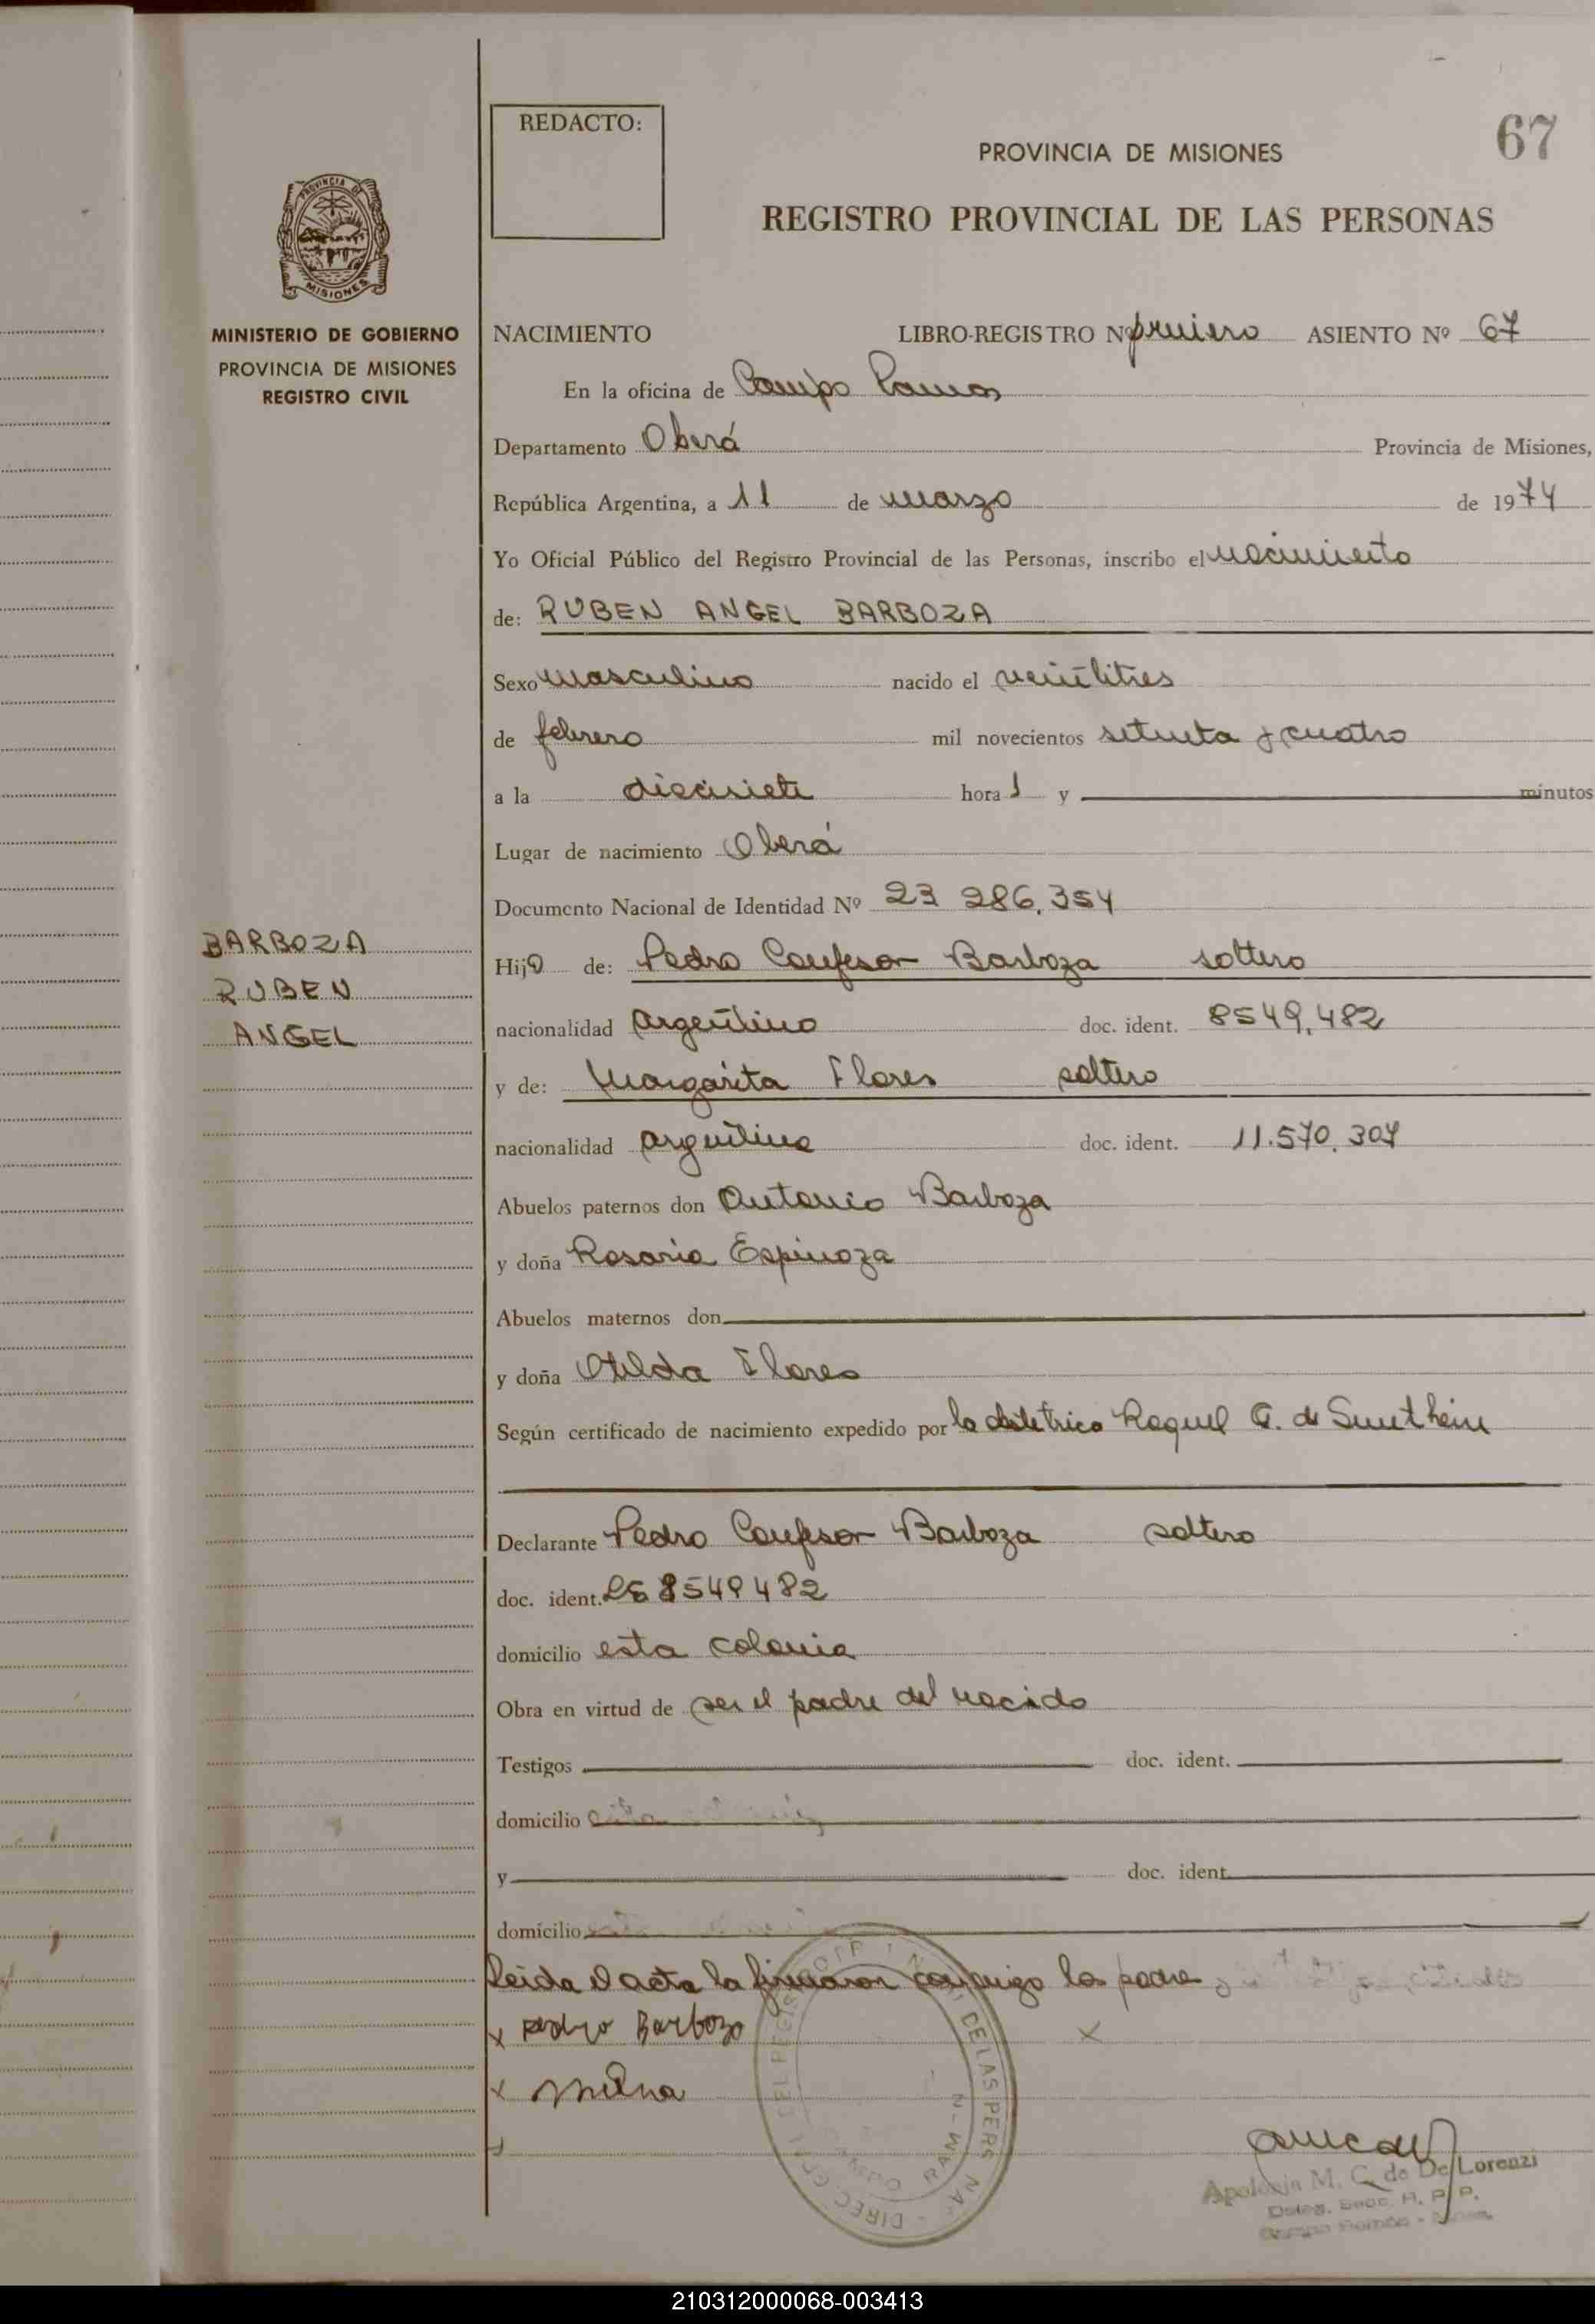 REDACTO:
67
PROVINCIA DE MISIONES
REGISTRO PROVINCIAL DE LAS PERSONAS
PROVINCIA DE
MISIONES
MINISTERIO DE GOBIERNO
PROVINCIA DE MISIONES
REGISTRO CIVIL
NACIMIENTO LIBRO-REGISTRO Nº primero ASIENTO Nº 67
En la oficina de Campo Ramos
Departamento Oberá Provincia de Misiones,
República Argentina, a 11 de marzo de 1974
Yo Oficial Público del Registro Provincial de las Personas, inscribo el nacimiento
de: RUBEN ANGEL BARBOZA
Sexo masculino nacido el veintitres
de febrero mil novecientos setenta y cuatro
a la diecisiete hora s y minutos
Lugar de nacimiento Oberá
Documento Nacional de Identidad Nº 23 286.354
BARBOZA
RUBEN
ANGEL
Hijo de: Pedro Confesor Barboza soltero
nacionalidad argentino doc. ident. 8549.482
y de: Margarita Flores soltera
nacionalidad argentina doc. ident. 11.570.307
Abuelos paternos don Antonio Barboza
y doña Rosaria Espinoza
Abuelos maternos don
y doña Otilda Flores
Según certificado de nacimiento expedido por la obstetrica Raquel G. de
Declarante Pedro Confesor Barboza soltero
doc. ident. LE 8549482
domicilio esta colonia
Obra en virtud de ser el padre del nacido
Testigos doc. ident.
domicilio
y doc. ident.
domicilio
Leida el acta la firmaron conmigo los padre
x Pedro Barbozo x
x
DE LAS PERS NA
Apolonia M. C. de De Lorenzi
Deleg. Secc. R. P. P.
210312000068-003413